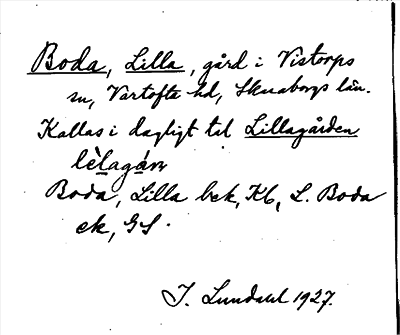 Boda, Lilla, gård i Vistorps
sn, Vartofta hd, Skaraborgs län.
Kallas i dagligt tal Lillagården
lèlagán
Boda, Lilla bek, Kb, L. Boda
ek, GS.
J. Lundahl 1927.